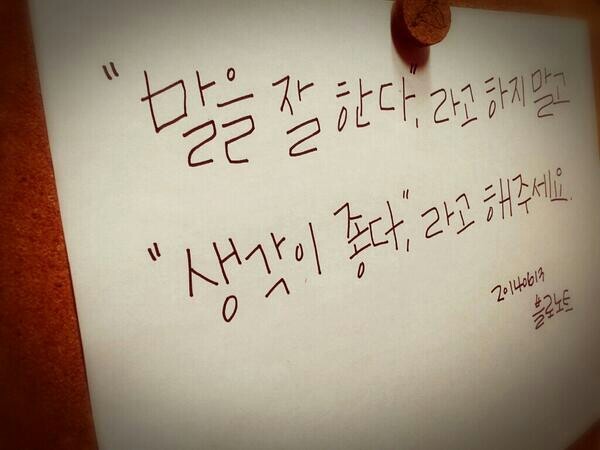 "말을 잘 한다", 라고 하지말고
"생각이 좋다", 라고 해주세요.
20140613
블로노트